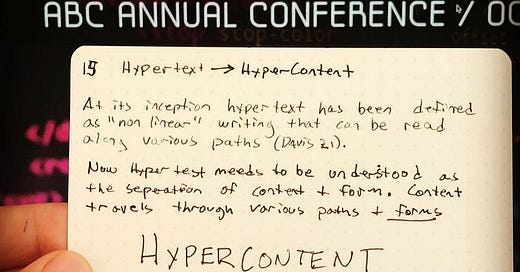 ABC ANNUAL CONFERENCE / OC
stop-color
offset
</d
cre
15 Hypertext → HyperContent
At its inception hypertext has been defined
as "non linear" writing that can be read
along various paths (Davis 21).
Now Hyper test needs to be understood as
the seperation of content + form. Content
travels through various paths + forms
HYPERCONTENT